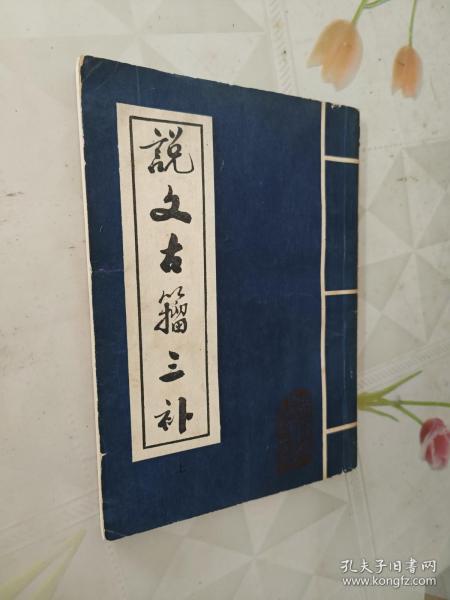 說文古籀三补
上
孔夫子旧书网
www.kongfz.com